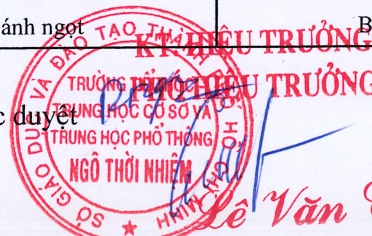 ánh ngọt
B
KT. HIỆU TRƯỞNG
PHÓ HIỆU TRƯỞNG
c duyệt
SỞ GIÁO DỤC VÀ ĐÀO TẠO THÀNH PHỐ HỒ CHÍ MINH
TRƯỜNG PHỔ THÔNG
TRUNG HỌC CƠ SỞ VÀ
TRUNG HỌC PHỔ THÔNG
NGÔ THỜI NHIỆM
Lê Văn